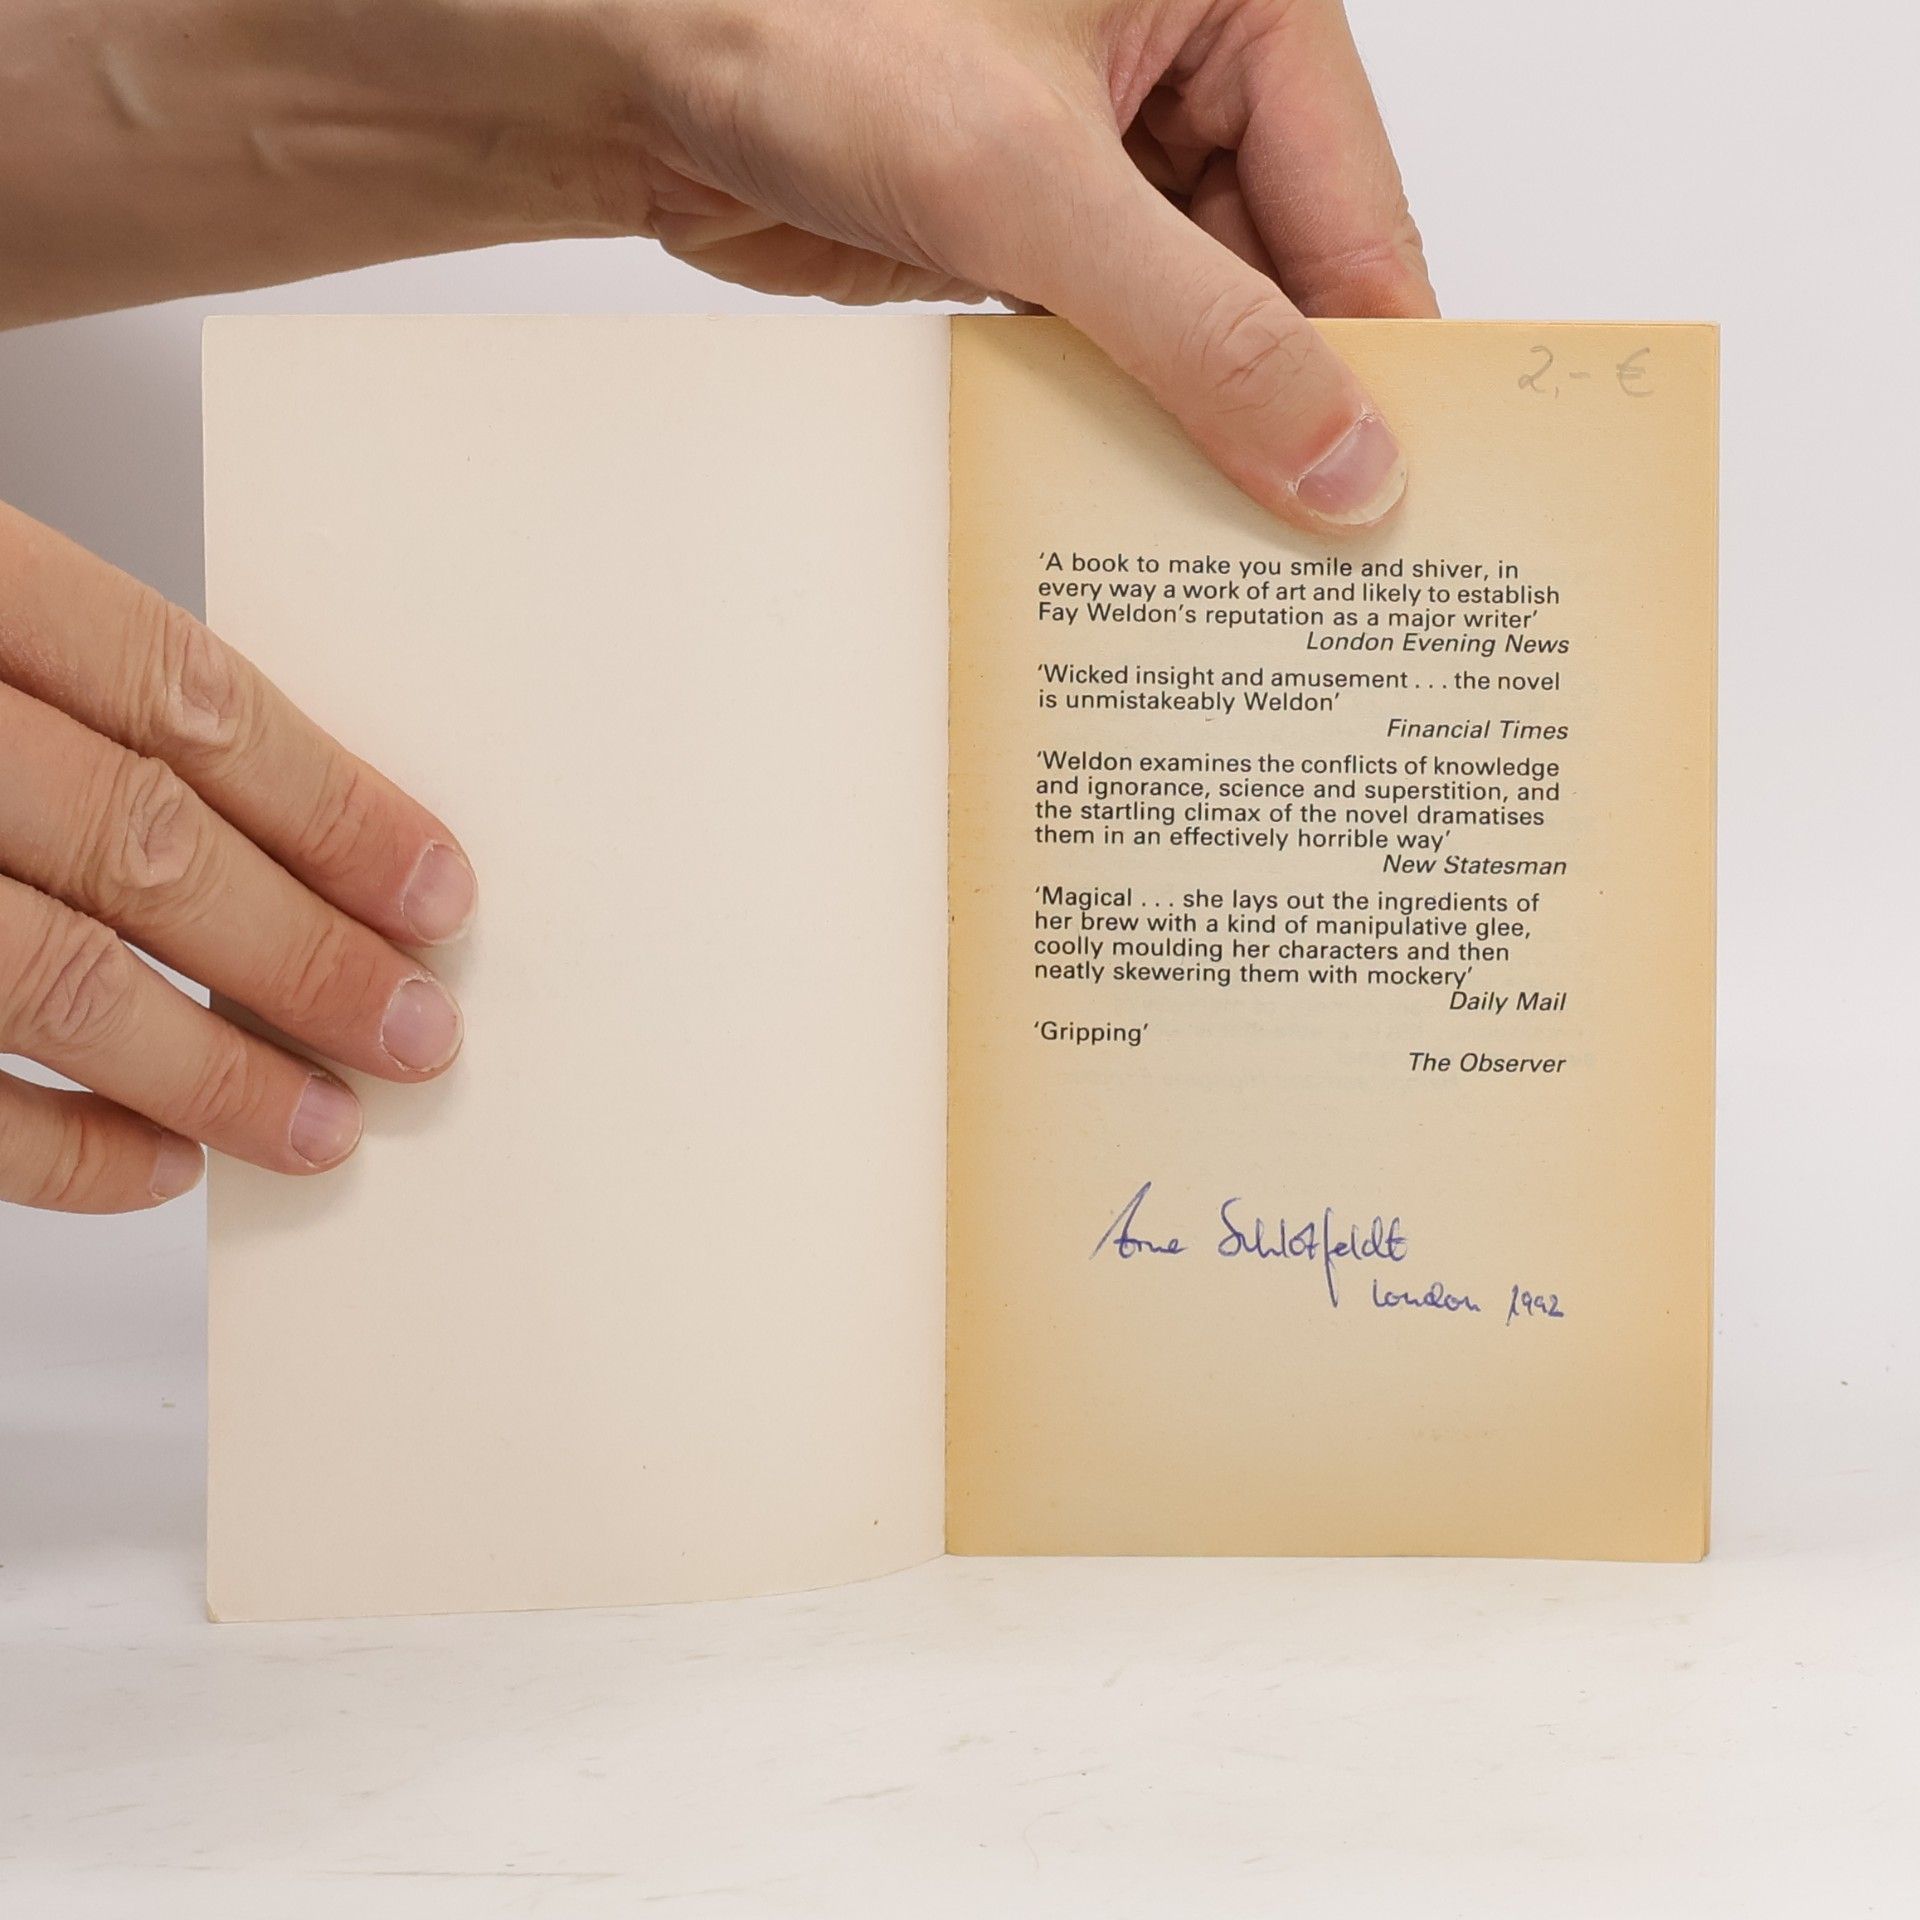 2,- €
‘A book to make you smile and shiver, in
every way a work of art and likely to establish
Fay Weldon’s reputation as a major writer’
London Evening News
‘Wicked insight and amusement . . . the novel
is unmistakeably Weldon’
Financial Times
‘Weldon examines the conflicts of knowledge
and ignorance, science and superstition, and
the startling climax of the novel dramatises
them in an effectively horrible way’
New Statesman
‘Magical . . . she lays out the ingredients of
her brew with a kind of manipulative glee,
coolly moulding her characters and then
neatly skewering them with mockery’
Daily Mail
‘Gripping’
The Observer
Arne Schlotfeldt
London 1992